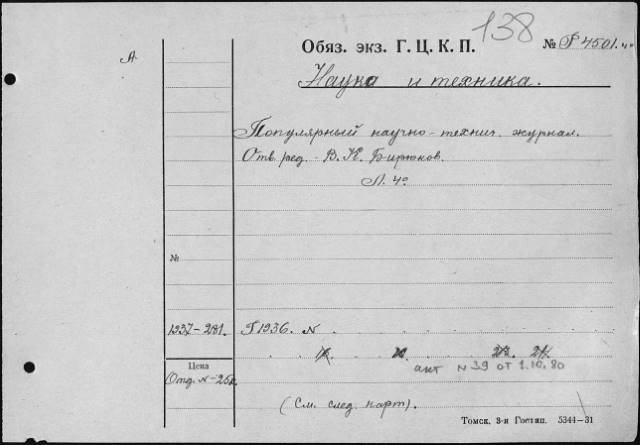 138
Обяз. экз. Г. Ц. К. П. № Г 4501.
А
Наука и техника.
Популярный научно-технич. журнал.
Отв. ред. В. К. Бирюков.
Л. 4°
№
1937-281. Г1936. N
Цена
акт N 39 от 1.10.80
Отд. N-25к.
(См. след. карт).
Томск. 3-я Гостип. 5344—31